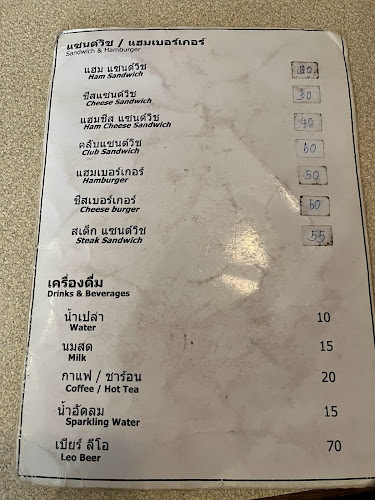 แซนด์วิช / แฮมเบอร์เกอร์
Sandwich & Hamburger
แฮม แซนด์วิช
Ham Sandwich
ชีสแซนด์วิช 30
Cheese Sandwich
แฮมชีส แซนด์วิช 40
Ham Cheese Sandwich
คลับแซนด์วิช 60
Club Sandwich
แฮมเบอร์เกอร์ 50
Hamburger
ชีสเบอร์เกอร์ 60
Cheese burger
สเต็ก แซนด์วิช 55
Steak Sandwich
เครื่องดื่ม
Drinks & Beverages
น้ำเปล่า 10
Water
นมสด 15
Milk
กาแฟ / ชาร้อน 20
Coffee / Hot Tea
น้ำอัดลม 15
Sparkling Water
เบียร์ ลีโอ 70
Leo Beer